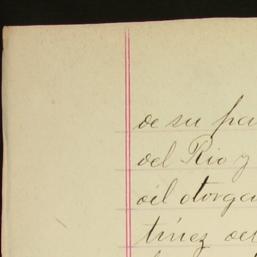 de su pa
del Rio y
oil otorga
tinez de